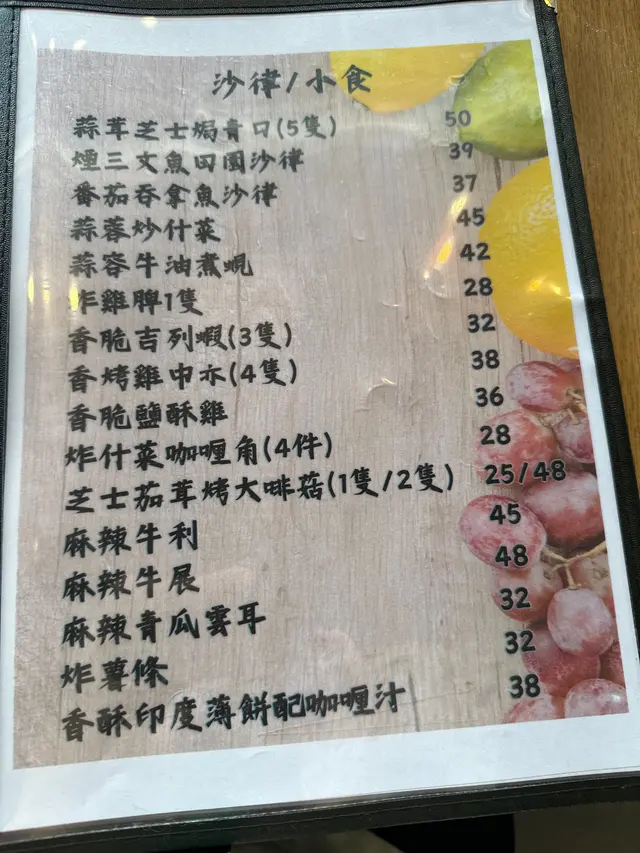 沙律/小食
蒜茸芝士焗青口(5隻) 50
煙三文魚田園沙律 39
番茄吞拿魚沙律 37
蒜蓉炒什菜 45
蒜容牛油煮蜆 42
炸雞脾1隻 28
香脆吉列蝦(3隻) 32
香烤雞中亦(4隻) 38
香脆鹽酥雞 36
炸什菜咖喱角(4件) 28
芝士茄茸烤大啡菇(1隻/2隻) 25/48
麻辣牛利 45
麻辣牛展 48
麻辣青瓜雲耳 32
炸薯條 32
香酥印度薄餅配咖喱汁 38